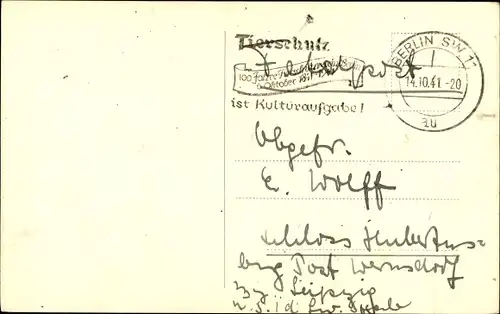 Tierschutz
Feldpost!
100 Jahre
Oktober
ist Kulturaufgabe!
BERLIN SW 11
14.10.41.-20
zu
Obgefr.
E. Wolff
Schloss Hubertus-
burg Post Wermsdorf
Leipzig